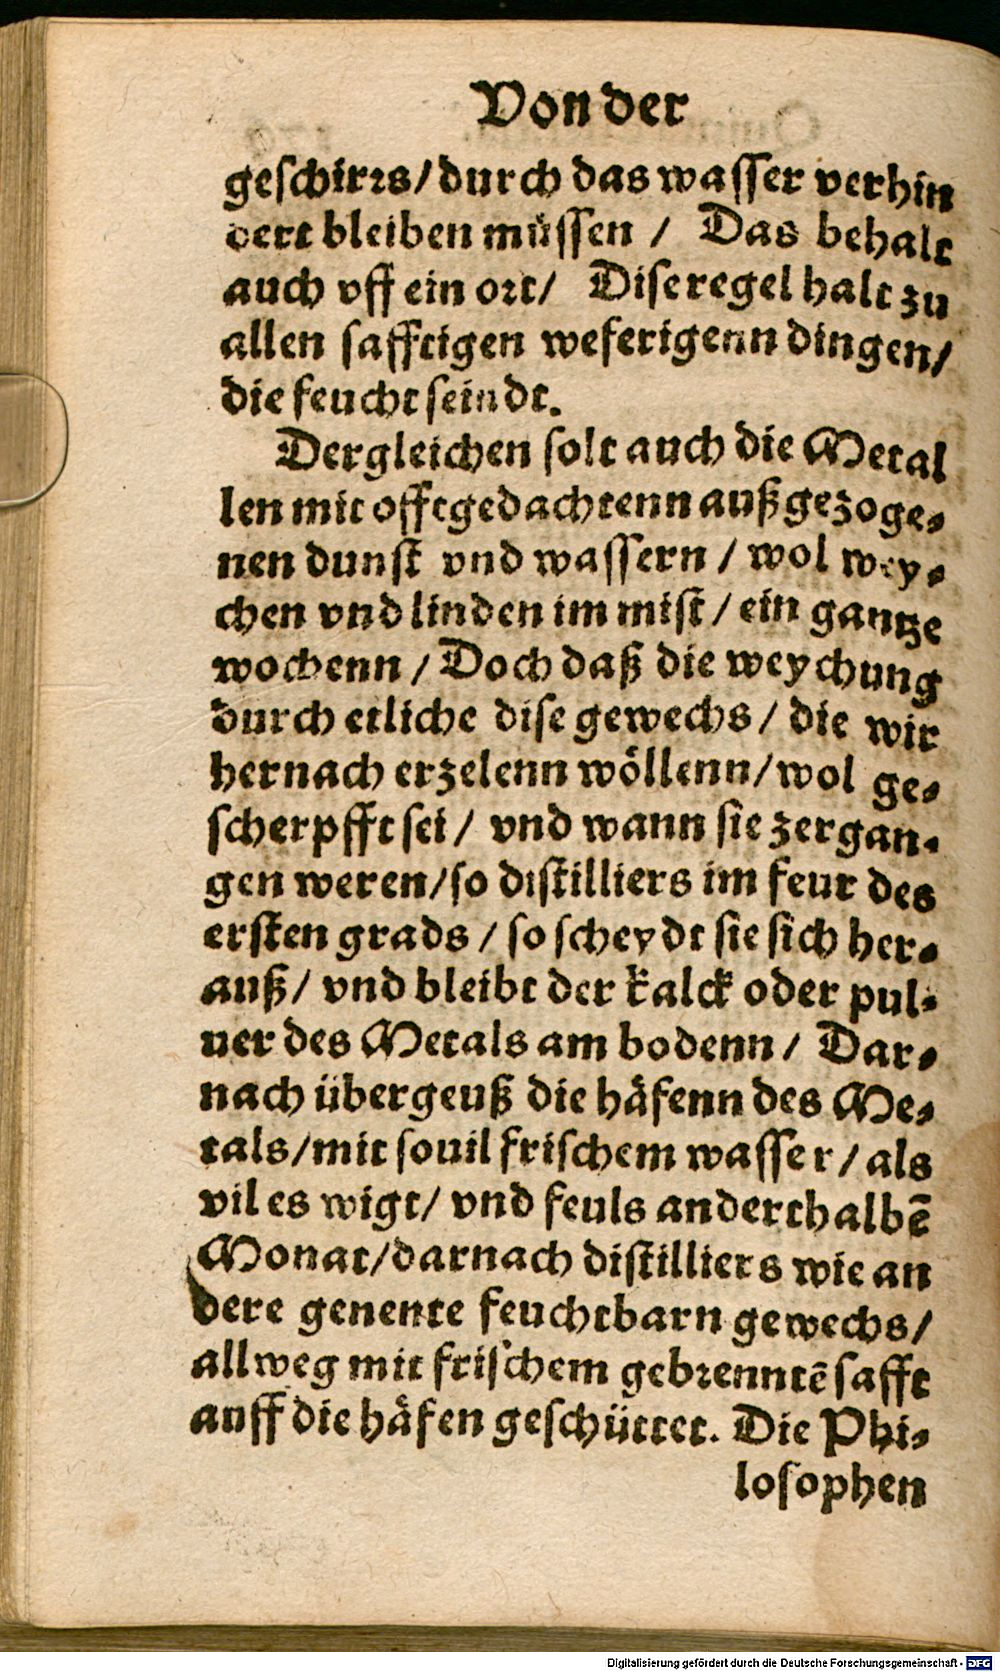 Von der
geſchirꝛs/durch das waſſer verhin
dert bleiben müſſen / Das behalt
auch vff ein oꝛt/ Diſe regel halt zu
allen ſafftigen weſerigenn dingen/
die feucht ſeindt.
Dergleichen ſolt auch die Metal
len mit offtgedachtenn außgezoge-
nen dunſt vnd waſſern / wol wey-
chen vnd linden im miſt / ein gantze
wochenn / Doch daß die weychung
durch etliche diſe gewechs / die wir
hernach erzelenn wöllenn/wol ge-
ſcherpfft ſei / vnd wann ſie zergan-
gen weren/ſo diſtilliers im feur des
erſten grads / ſo ſcheydt ſie ſich her-
auß/ vnd bleibt der kalck oder pul-
uer des Metals am bodenn / Dar-
nach übergeuß die häfenn des Me-
tals/mit ſouil friſchem waſſer/ als
vil es wigt/ vnd feuls anderthalbē
Monat/darnach diſtilliers wie an
dere genente feuchtbarn gewechs/
allweg mit friſchem gebꝛenntē ſafft
auff die häfen geſchüttet. Die Phi-
loſophen
Digitalisierung gefördert durch die Deutsche Forschungsgemeinschaft - DFG